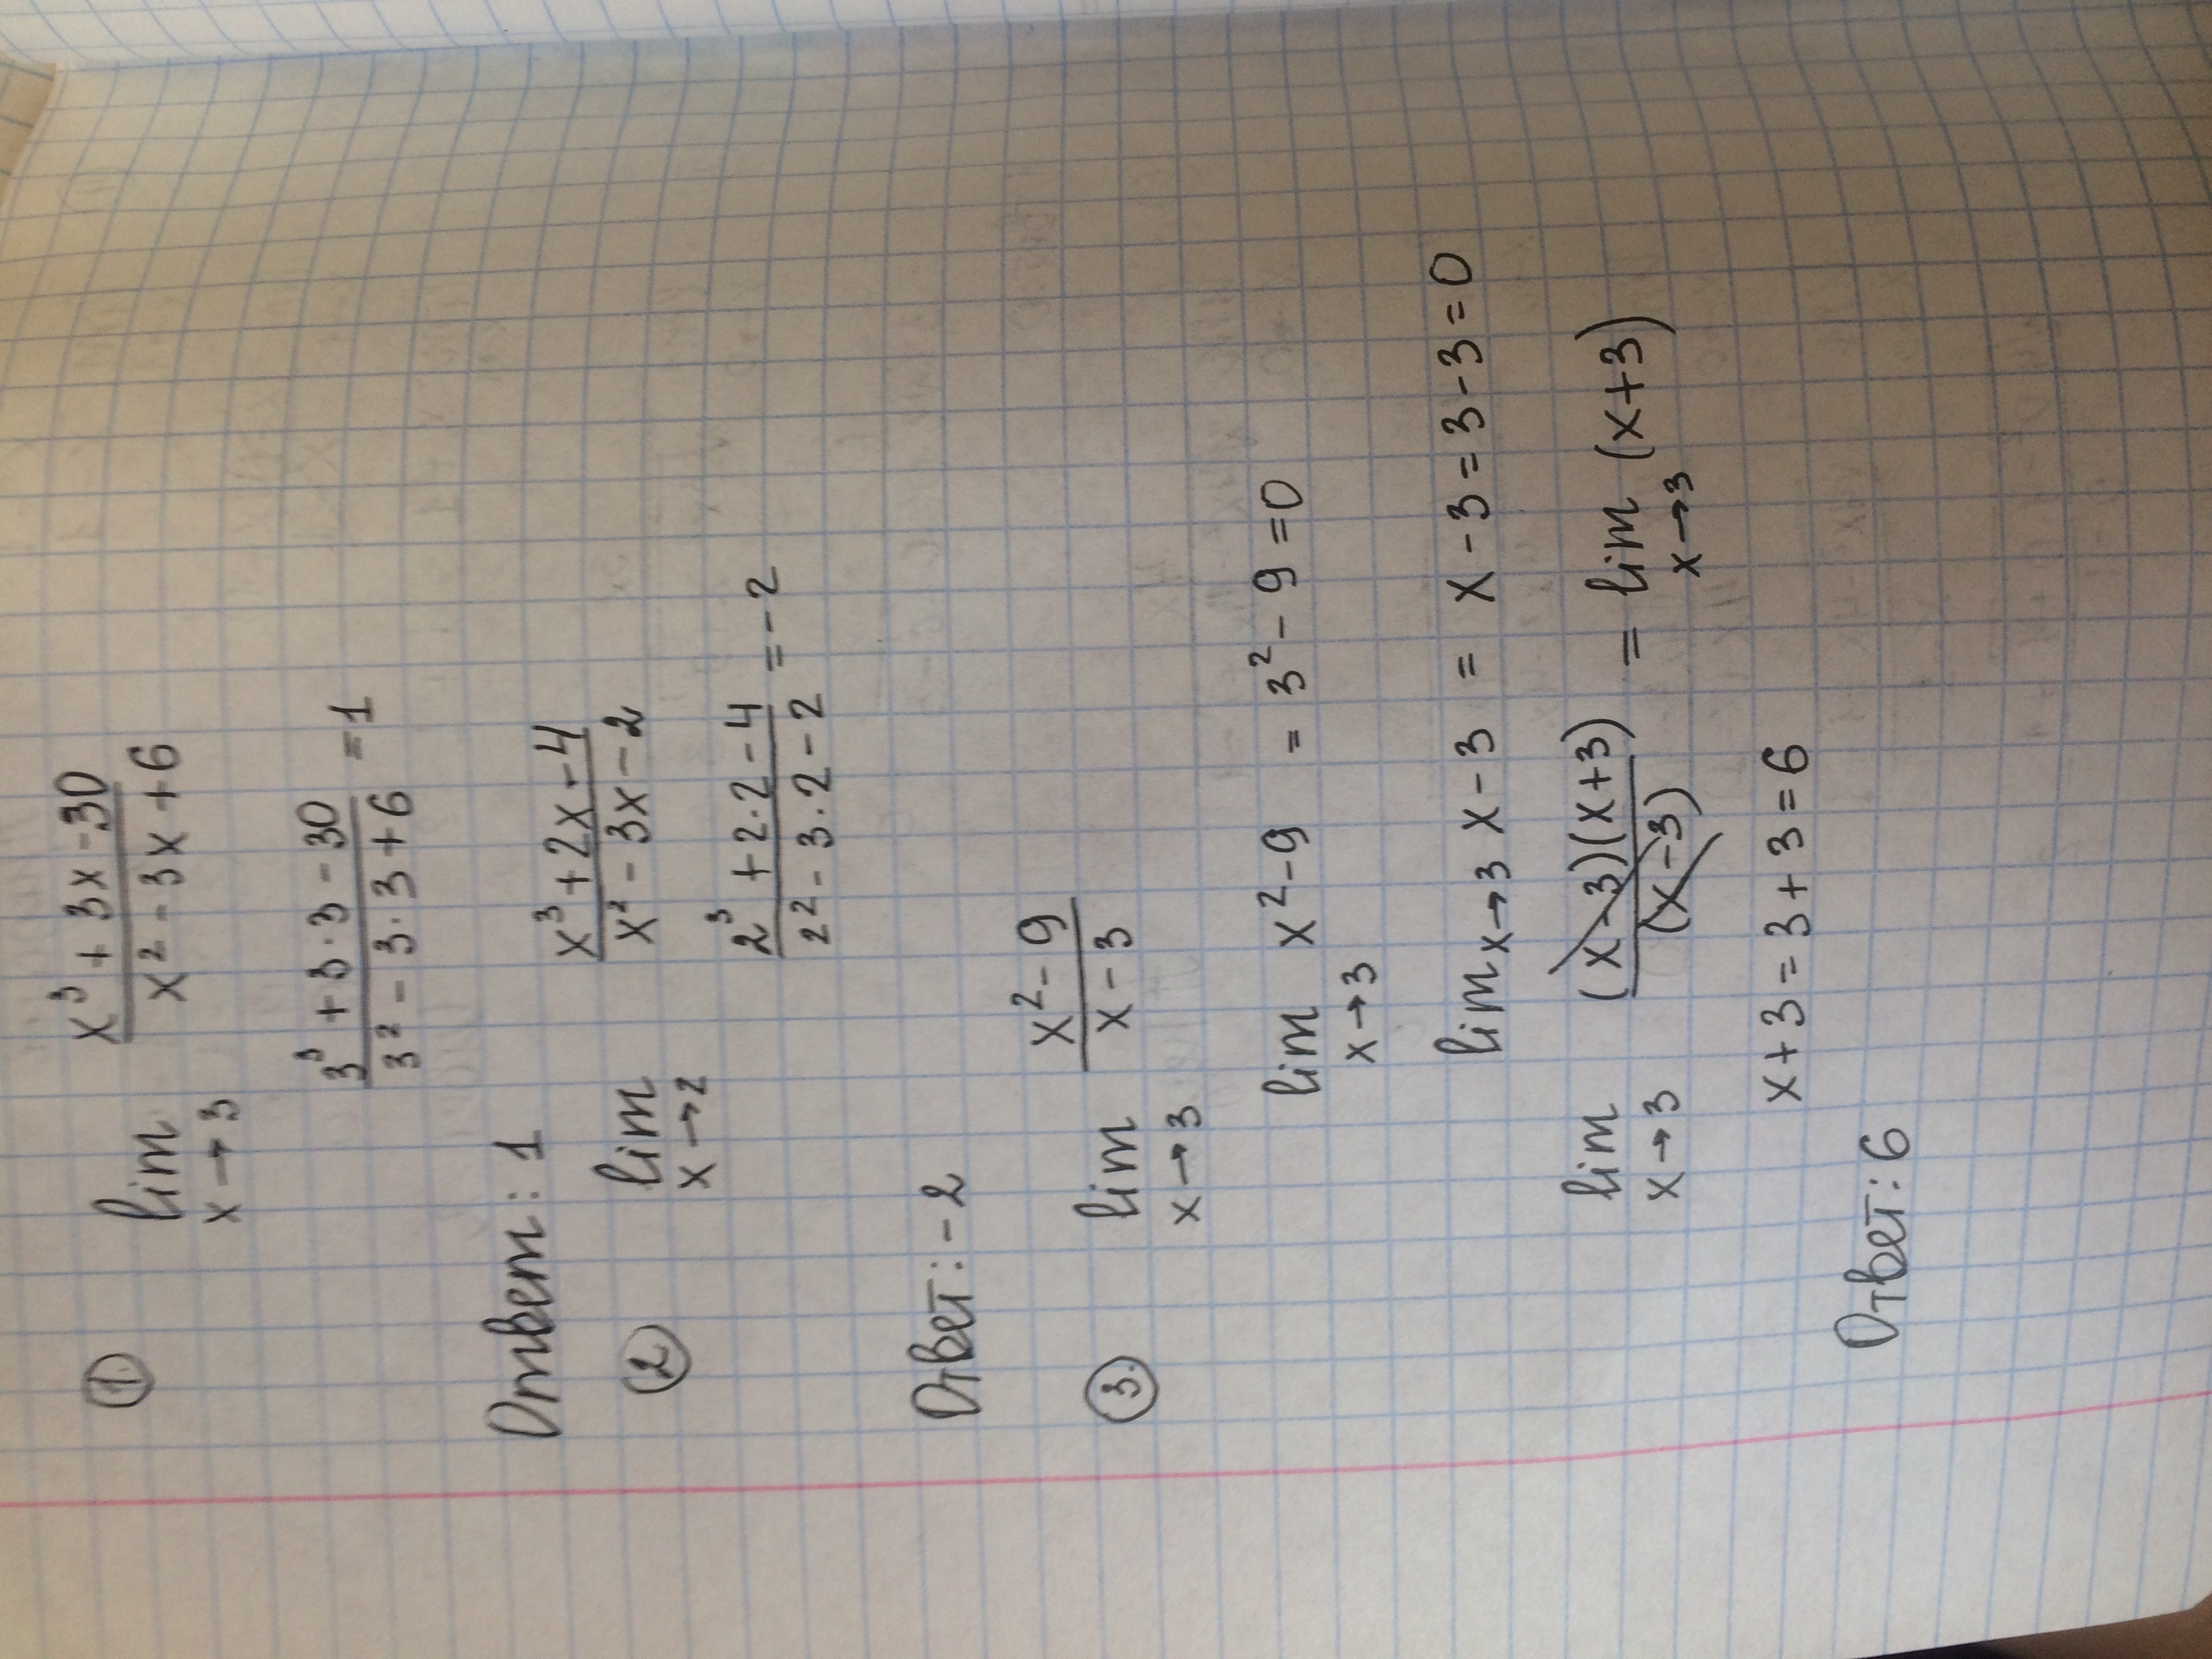 ① lim x→3 (x³ + 3x - 30)/(x² - 3x + 6)
(3³ + 3·3 - 30)/(3² - 3·3 + 6) = 1
Ответ: 1
② lim x→2 (x³ + 2x - 4)/(x² - 3x - 2)
(2³ + 2·2 - 4)/(2² - 3·2 - 2) = -2
Ответ: -2
③. lim x→3 (x² - 9)/(x - 3)
lim x→3 x² - 9 = 3² - 9 = 0
lim x→3 x - 3 = x - 3 = 3 - 3 = 0
lim x→3 (x - 3)(x + 3)/(x - 3) = lim x→3 (x + 3)
x + 3 = 3 + 3 = 6
Ответ: 6